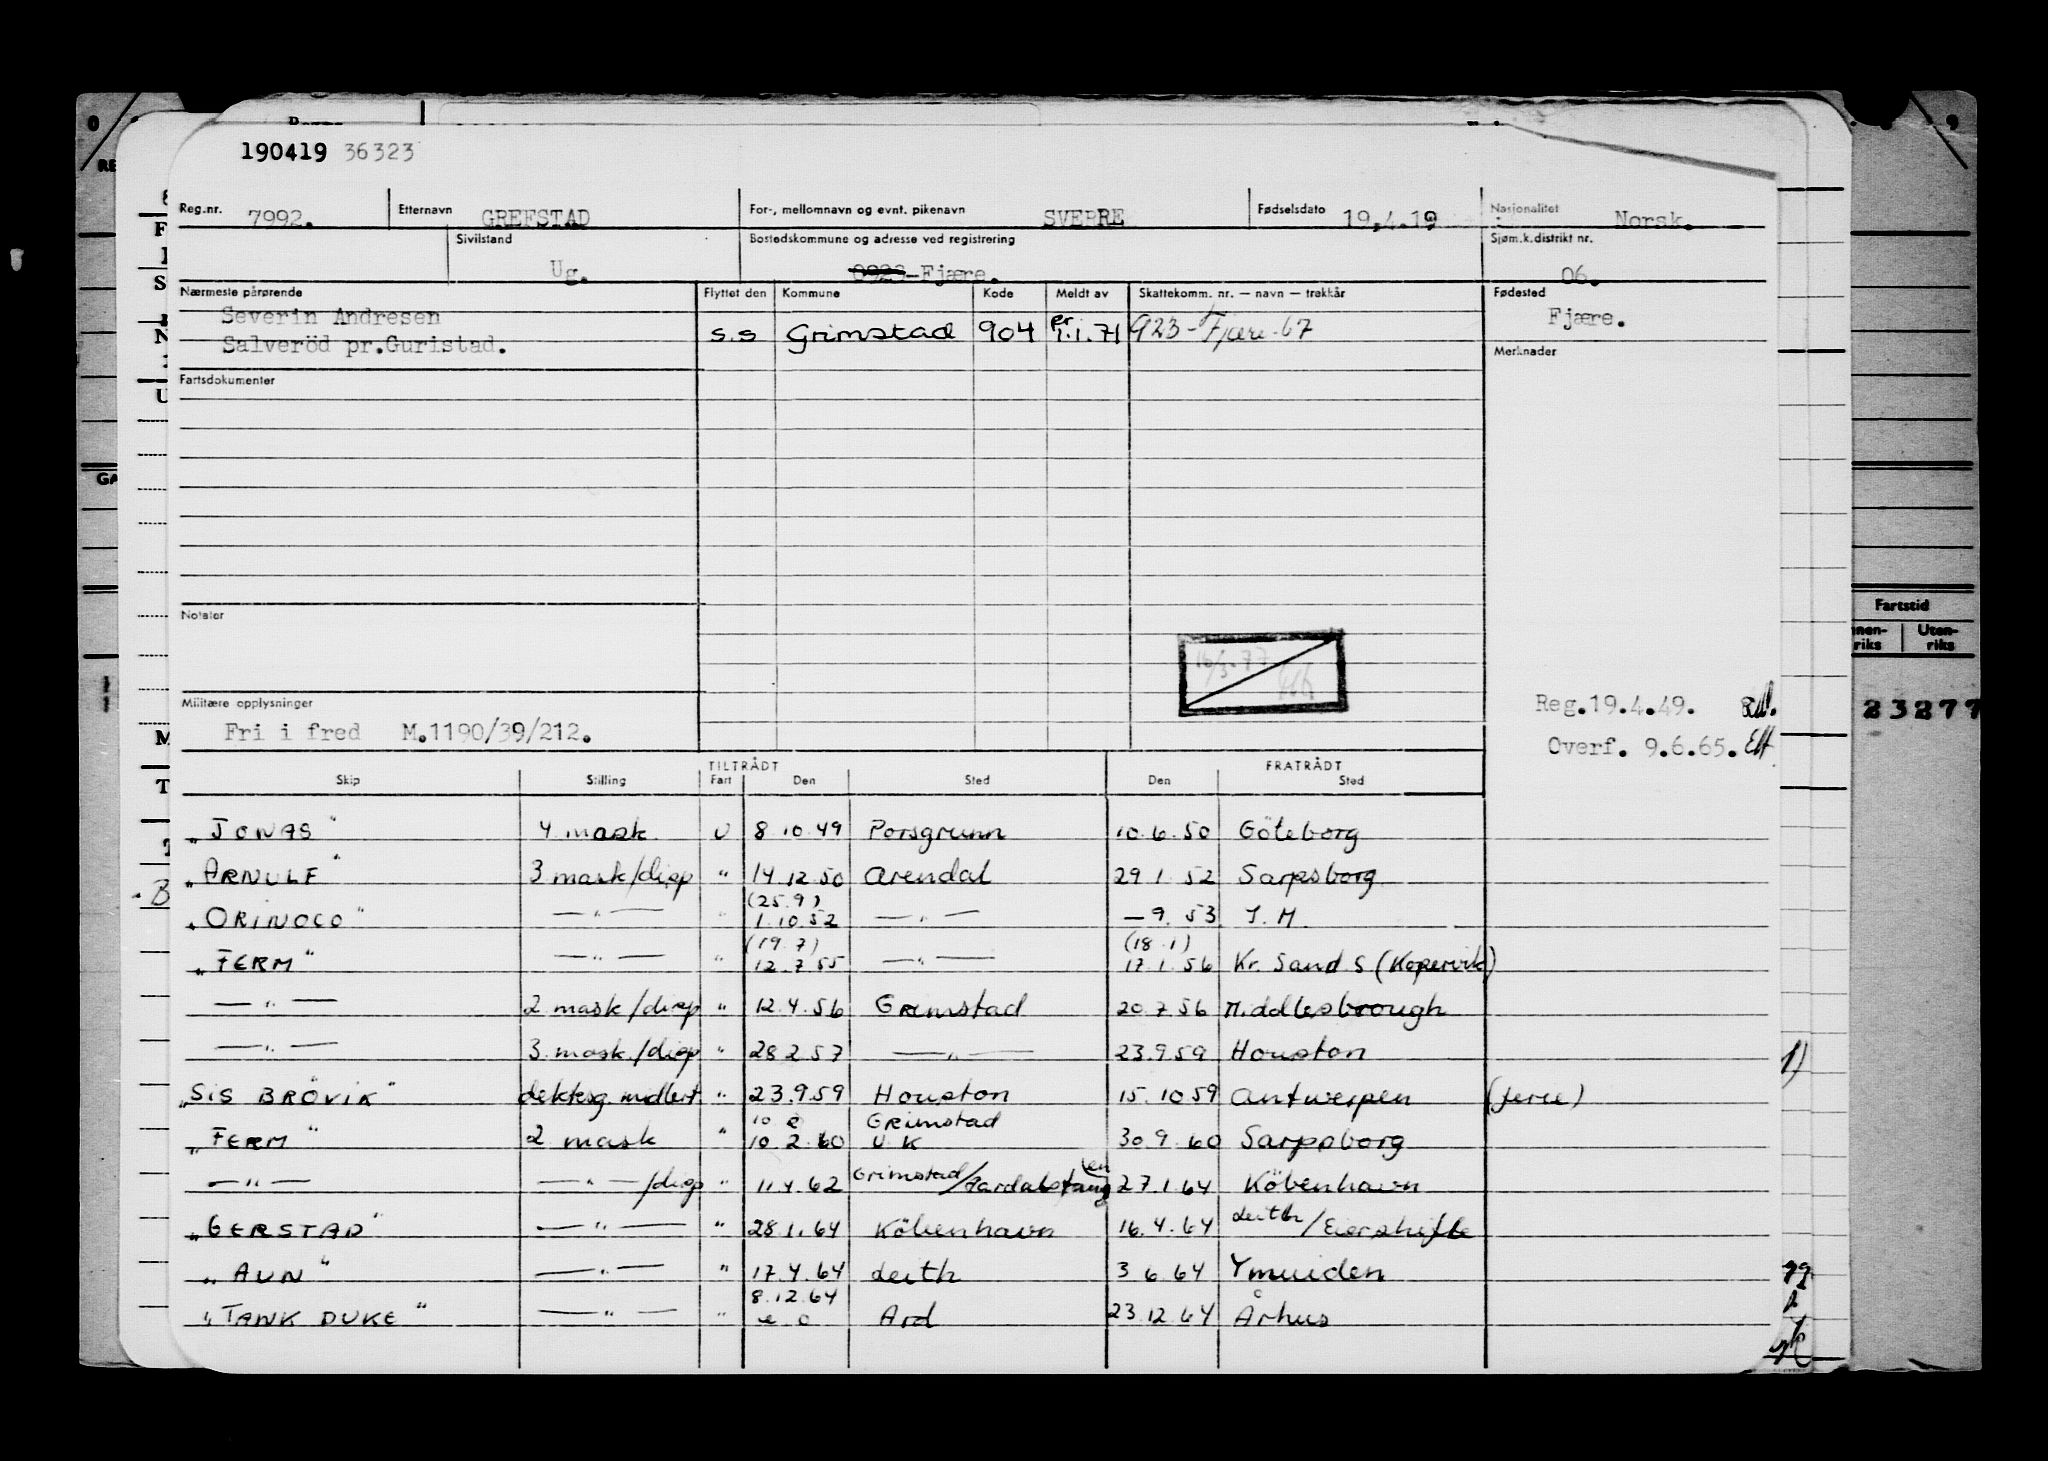 190419 36323
Reg.nr. 7992. Etternavn GREFSTAD For-, mellomnavn og evnt. pikenavn SVERRE Fødselsdato 19.4.19 Nasjonalitet Norsk.
Sivilstand Ug. Bostedskommune og adresse ved registrering 0923-Fjære. Sjøm.k.distrikt nr. 06.
Nærmeste pårørende Flyttet den Kommune Kode Meldt av Skattekomm. nr. — navn — trekkår Fødested
Severin Andresen Fjære.
Salveröd pr.Guristad. S.S Grimstad 904 pr 1.1.71 923-Fjære-67
Merknader
Fartsdokumenter
Notater
16/3.77
Militære opplysninger
Fri i fred M.1190/39/212.
Reg.19.4.49.
Overf. 9.6.65.
TILTRÅDT FRATRÅDT
Skip Stilling Fart Den Sted Den Sted
„JONAS" 4 mask. U 8.10.49 Porsgrunn 10.6.50 Göteborg
„ARNULF" 3 mask/disp " 14.12.50 Arendal 29.1.52 Sarpsborg
(25.9)
„ORINOCO" —"— " 1.10.52 —"— —9.53 I.M
(19.7) (18.1)
„FERM" —"— " 12.7.55 —"— 17.1.56 Kr. Sand S (Kopervik)
—"— 2 mask/disp " 12.4.56 Grimstad 20.7.56 Middlesbrough
—"— 3 mask./disp " 28.2.57 —"— 23.9.59 Houston
„SIS BRÖVIK" " 23.9.59 Houston 15.10.59 Antwerpen (ferie)
10 2 Grimstad
„FERM" 2 mask " 10.2.60 U.K 30.9.60 Sarpsborg
—"— —"—/disp " 11.4.62 Grimstad/Aardalstangen 27.1.64 Köbenhavn
„GERSTAD" —"— " 28.1.64 Köbenhavn 16.4.64 Leith/Eierskifte
„AUN" —"— " 17.4.64 Leith 3.6.64 Ymuiden
8.12.64
„TANK DUKE" —"— " e.o Ard 23.12.64 Århus
Fartstid
Uten-
riks
23277
1)